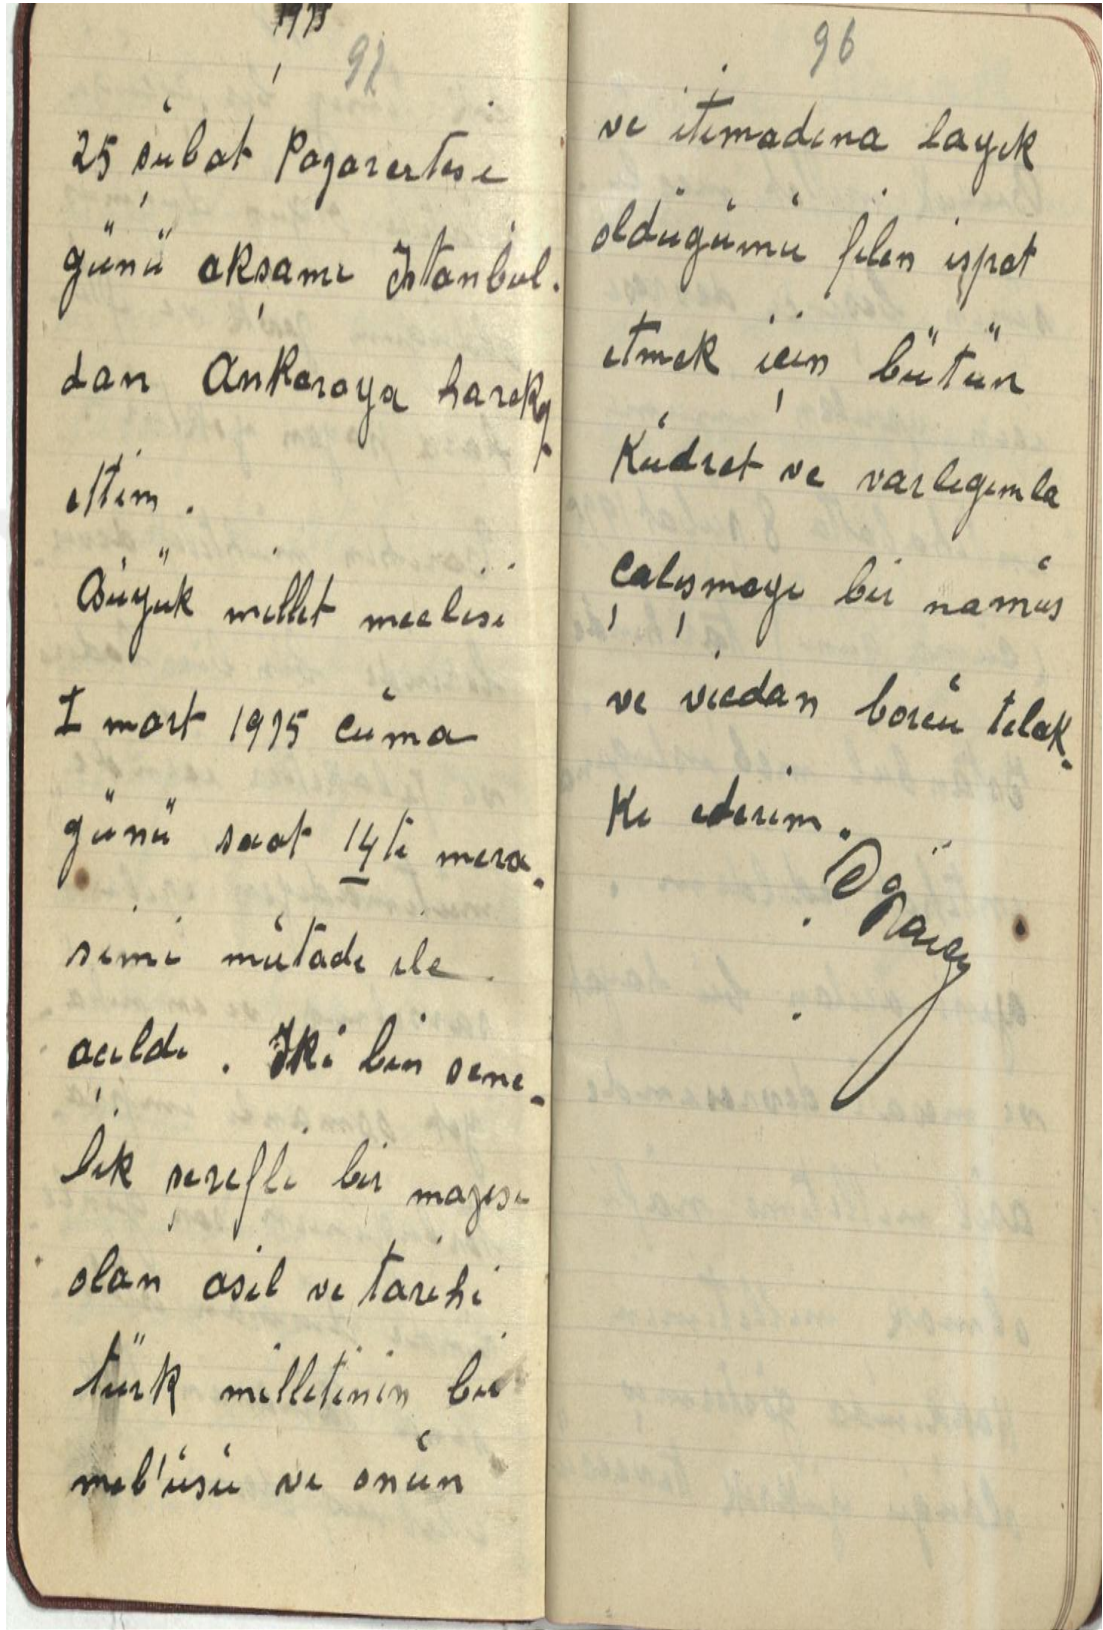 92
25 şubat Pazarertesi
günü akşamı Istanbul.
dan Ankaraya hareket
ettim.
Büyük millet meclisi
I mart 1935 cüma
günü saat 14te mera-
simi mütade ile
açıldı. Iki bin sene-
lik şerefli bir mazisi
olan asil ve tarihi
türk milletinin bir
meb'usu ve onun
96
ve itimadına layık
olduğumu filen ispat
etmek için bütün
Kudret ve varlığımla
çalışmayı bir namus
ve vicdan borcu telak-
ki ederim.